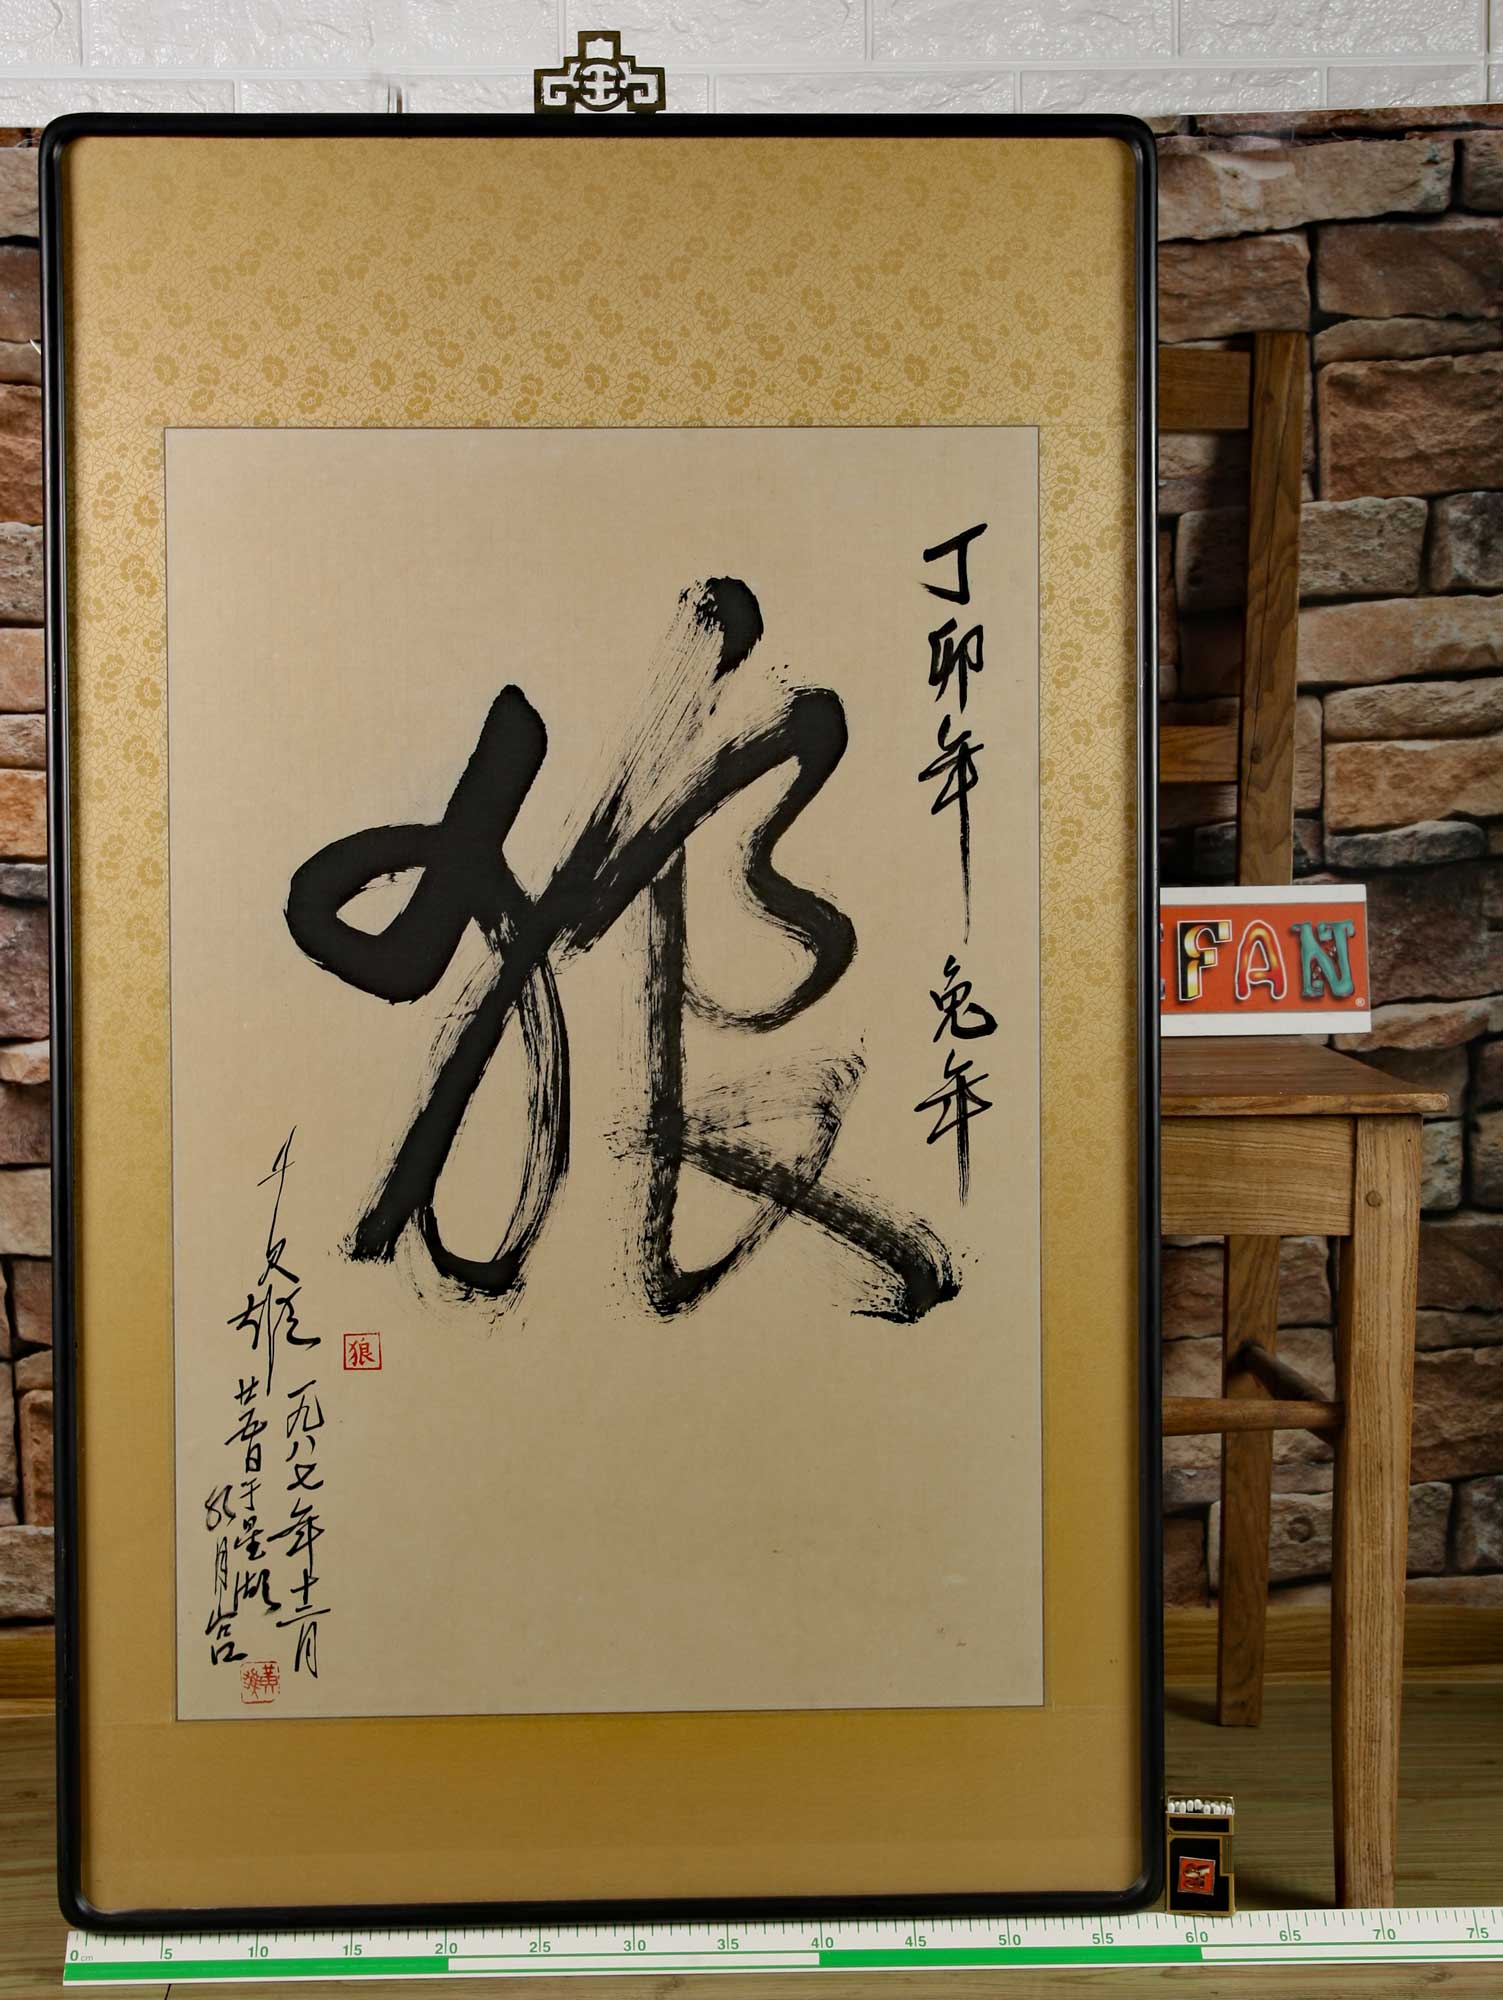 丁卯年 兔年
狼
狼
一九八七年十二月
廿五日于星湖
水月宫
FAN
®
0 cm 5 10 15 20 25 30 35 40 45 50 55 60 65 70 75